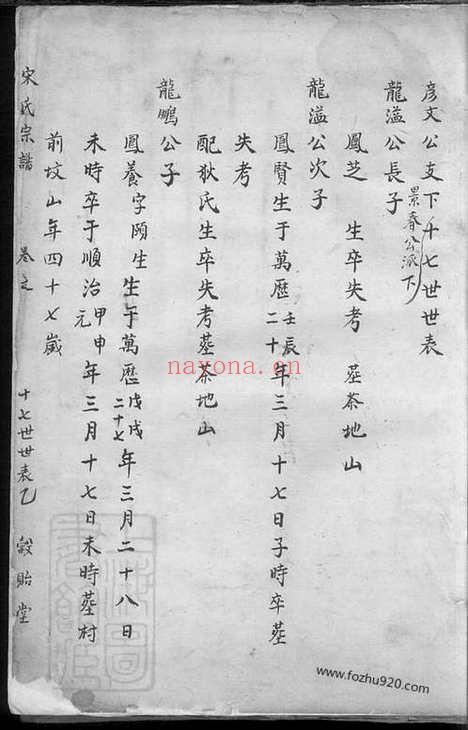 彥文公支下十七世世表
景春公派下
龍溢公長子
鳳芝 生卒失考 塟茶地山
龍溢公次子
鳳賢生于萬歷壬辰二十年三月十七日子時卒塟
失考
配狄氏生卒失考塟茶地山
龍鵬公子
鳳養字頤生生于萬歷戊戌二十七年三月二十八日
未時卒于順治甲申元年三月十七日未時塟村
前坟山年四十七歲
宋氏宗譜 卷之 十七世世表乙 穀貽堂
nayona.cn
www.fozhu920.com